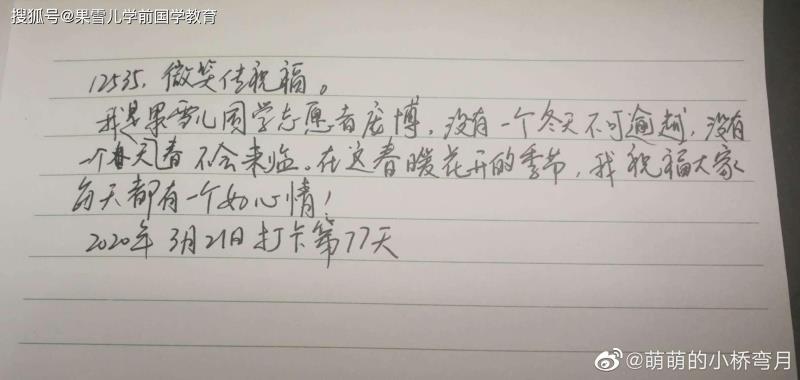 搜狐号@果雪儿学前国学教育
12535，微笑传祝福。
我是果雪儿国学志愿者庞博，没有一个冬天不可逾越，没有
一个春天不会来临。在这春暖花开的季节，我祝福大家
每天都有一个好心情！
2020年3月21日打卡第77天
@萌萌的小桥弯月